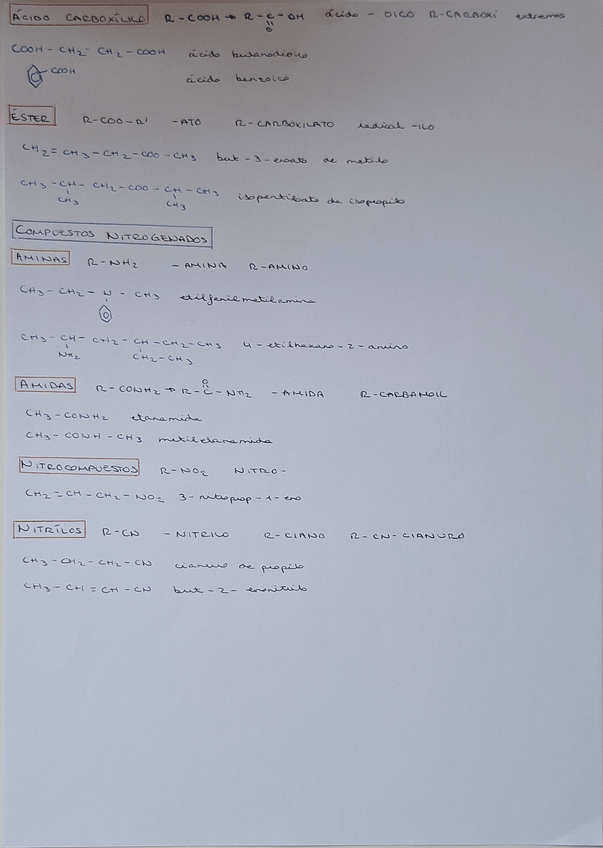 ÁCIDO CARBOXÍLICO R-COOH → R-C-OH ácido - OICO R-CARBOXI extremos
O
COOH-CH2-CH2-COOH ácido butanodioico
COOH ácido benzoico
ÉSTER R-COO-R' -ATO R-CARBOXILATO radical -ILO
CH2=CH3-CH2-COO-CH3 but-3-enoato de metilo
CH3-CH-CH2-COO-CH-CH3 isopentiloato de isopropilo
CH3 CH3
COMPUESTOS NITROGENADOS
AMINAS R-NH2 -AMINA R-AMINO
CH3-CH2-N-CH3 etilfenilmetilamina
CH3-CH-CH2-CH-CH2-CH3 4-etilhexano-2-amino
NH2 CH2-CH3
AMIDAS R-CONH2 → R-C-NH2 -AMIDA R-CARBAMOIL
O
CH3-CONH2 etanamida
CH3-CONH-CH3 metiletanamida
NITROCOMPUESTOS R-NO2 NITRO-
CH2=CH-CH2-NO2 3-nitroprop-1-eno
NITRÍLOS R-CN -NITRILO R-CIANO R-CN-CIANURO
CH3-CH2-CH2-CN cianuro de propilo
CH3-CH=CH-CN but-2-enonitrilo